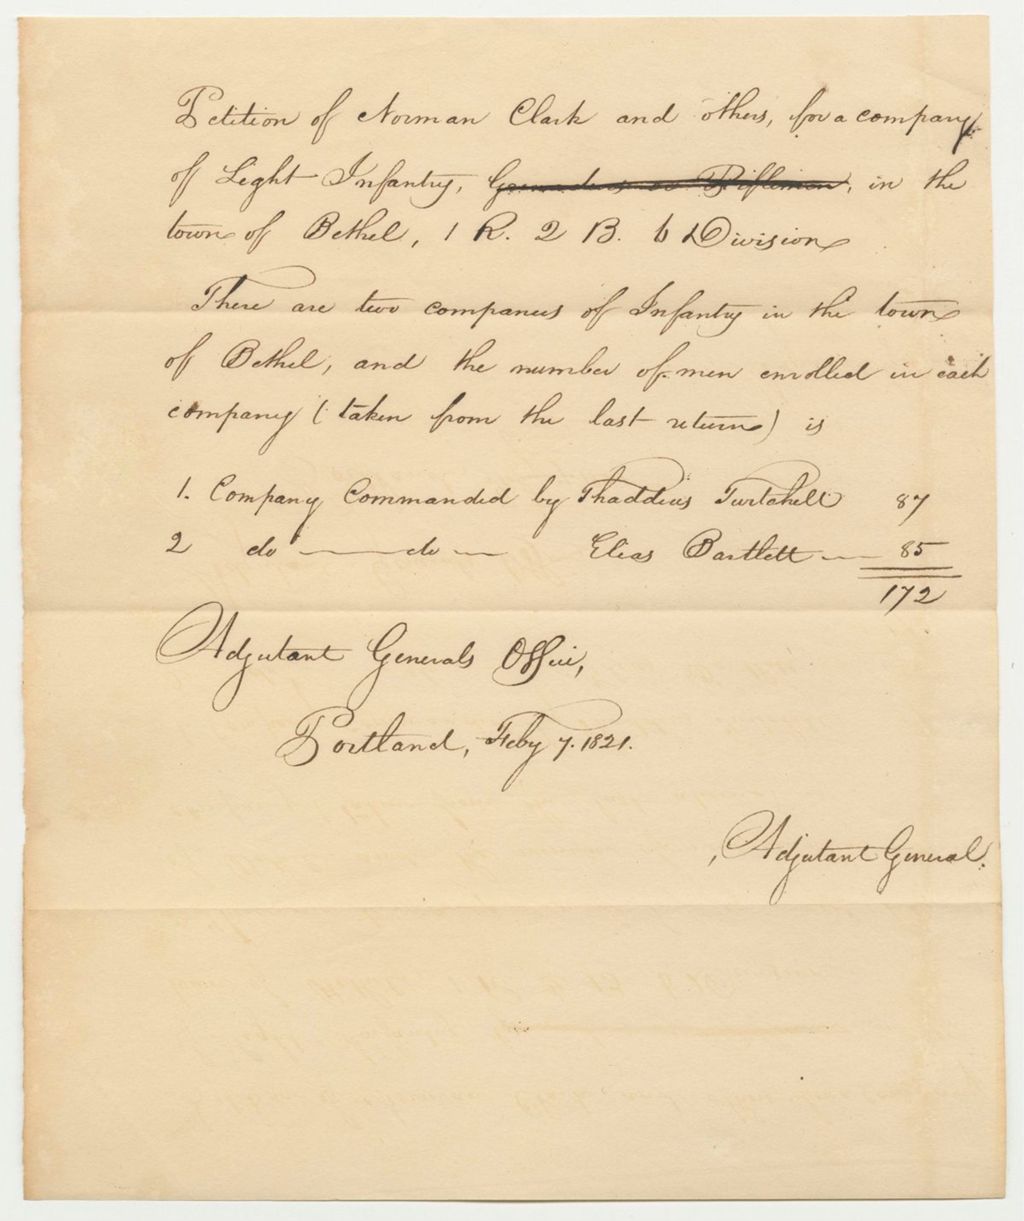 Petition of Norman Clark and others, for a company
of Light Infantry, Grenadiers or Riflemen, in the
town of Bethel, 1 R. 2 B. 6 Division
There are two companies of Infantry in the town
of Bethel, and the number of men enrolled in each
company (taken from the last return) is
1. Company Commanded by Thaddeus Twitchell 87
2 do do Elias Bartlett 85
172
Adjutant Generals Office,
Portland, Feby 7. 1821.
, Adjutant General.